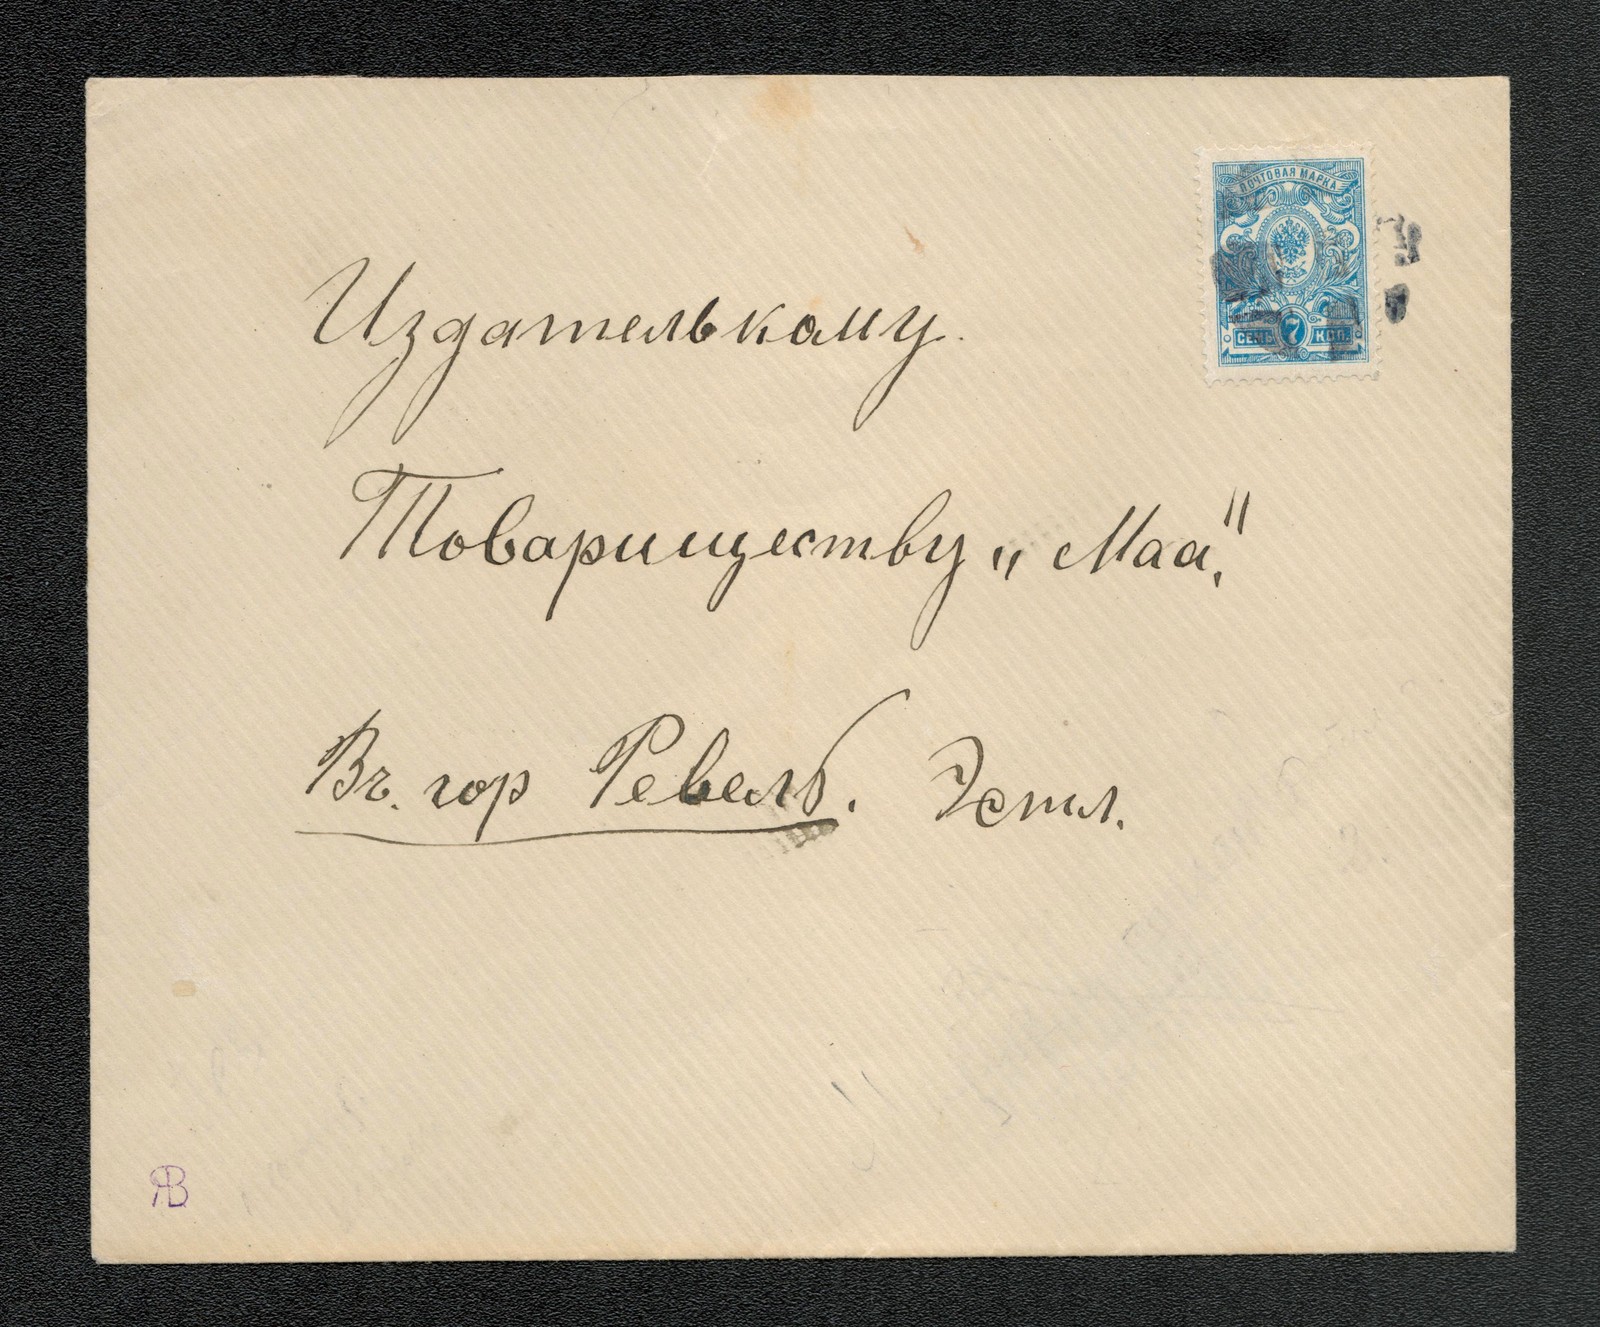 ПОЧТОВАЯ МАРКА
СЕМЬ 7 КОП.
Издателькому.
Товариществу „Маа."
Въ. гор Ревель. Эстл.